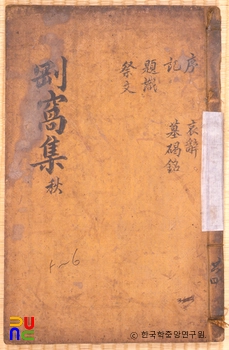 序 哀辭
記 墓碣銘
題識
祭文
剛窩集 秋
1~6
© 한국학중앙연구원